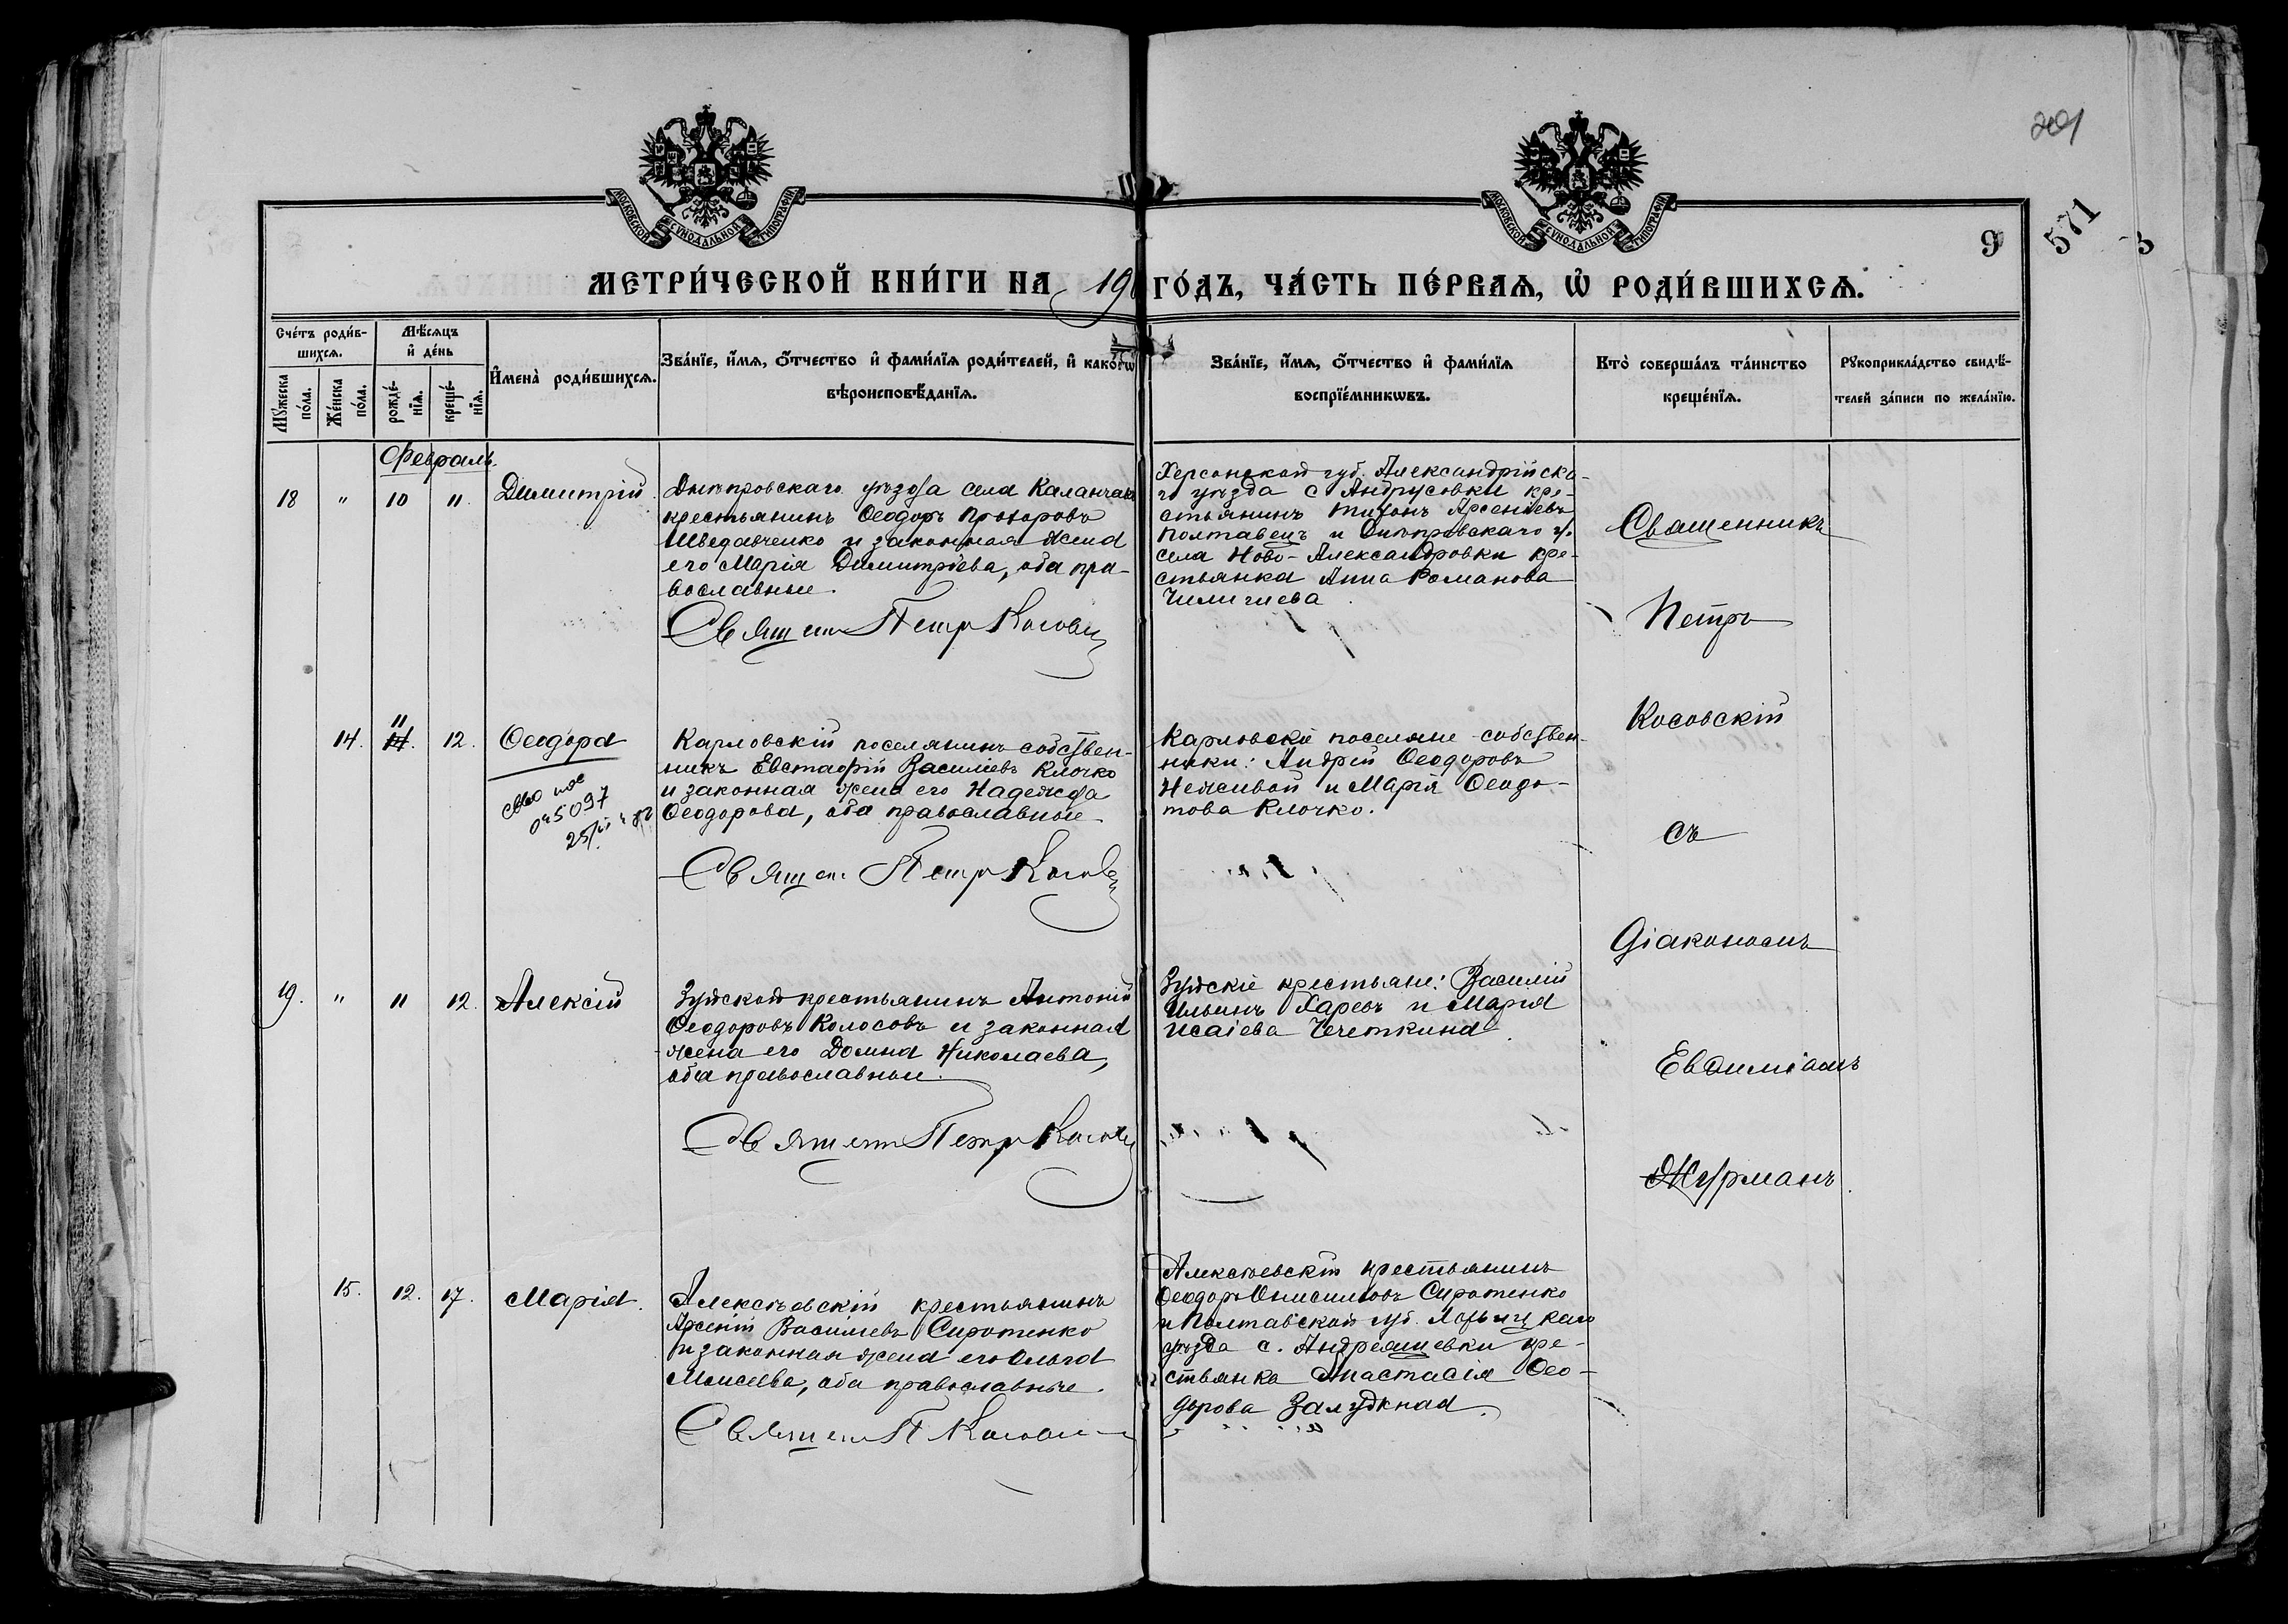 201
МОСКОВСКОЙ СѴНОДАЛЬНОЙ ТИПОГРАФІИ
МОСКОВСКОЙ СѴНОДАЛЬНОЙ ТИПОГРАФІИ
9
571
3
МЕТРИ́ЧЕСКОЙ КНИ́ГИ НА 190 ГО́ДЪ, ЧА́СТЬ ПЕ́РВАѦ, Ѡ҆ РОДИ́ВШИХСѦ.
Сче́тъ роди́в-
шихсѧ.
Мѹ́жеска
по́ла.
Же́нска
по́ла.
Мѣ́сѧцъ
и҆ де́нь
рожде́-
нїѧ.
креще́-
нїѧ.
И҆мена̀ роди́вшихсѧ.
Зва́нїе, и҆́мѧ, ѻ҆́тчество и҆ фами́лїѧ роди́телей, и҆ како́гѡ
вѣроисповѣ́данїѧ.
Зва́нїе, и҆́мѧ, ѻ҆́тчество и҆ фами́лїѧ
воспрїе́мникѡвъ.
Кто̀ соверша́лъ та́инство
креще́нїѧ.
Рѹкоприкла́дство свидѣ́-
телей за́писи по жела́нїю.
Февраль.
18 " 10 11. Димитрій.
Днѣпровскаго уѣзда села Каланчака
крестьянинъ Ѳеодоръ Прохоровъ
Шведавченко и законная жена
его Марія Димитріева, оба пра-
вославные.
Священ Петръ Косовскі
Херсонской губ. Александрійска-
го уѣзда с Андрусовки кре-
стьянинъ Тихонъ Арсеніевъ
Полтавецъ и Днѣпровскаго у.
села Ново-Александровки кре-
стьянка Анна Романова
Чиличиева.
Священникъ
Петръ
Косовскій
съ
Діакономъ
Евѳиміемъ
Журманъ.
14. 11 12. Ѳеодора
5097
Карловскій поселянинъ собствен-
никъ Евстафій Василіевъ Клочко
и законная жена его Надежда
Ѳеодорова, оба православные
Священ. Петръ Косовскі
Карловскіе поселяне собствен-
ники: Андрей Ѳеодоровъ
Неживой и Марія Ѳеодо-
това Клочко.
19. " 11 12. Алексій
Зуйской крестьянинъ Антоній
Ѳеодоровъ Колосовъ и законная
жена его Домна Николаева,
оба православные.
Священ Петръ Косовскі
Зуйскіе крестьяне: Василій
Ильинъ Харевъ и Марія
Исаіева Чечеткина.
15. 12. 17. Марія.
Алексѣевскій крестьянинъ
Арсеній Василіевъ Сиротенко
и законная жена его Ольга
Моисеева, оба православные.
Священ П Косовскі
Алексѣевскій крестьянинъ
Ѳеодоръ Онисимовъ Сиротенко
и Полтавской губ.
уѣзда с. Андреяшевки кре-
стьянка Анастасія Ѳео-
дорова